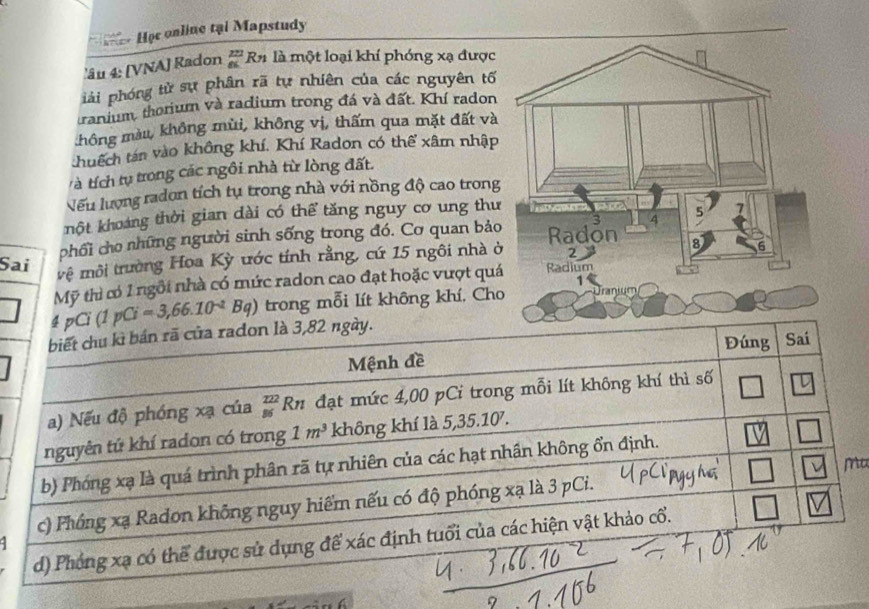 Học online tại Mapstudy
Câu 4: [VNA] Radon ²²²₈₆Rn là một loại khí phóng xạ được
giải phóng từ sự phân rã tự nhiên của các nguyên tố
uranium, thorium và radium trong đá và đất. Khí radon
không màu, không mùi, không vị, thấm qua mặt đất và
khuếch tán vào không khí. Khí Radon có thể xâm nhập
và tích tụ trong các ngôi nhà từ lòng đất.
Nếu lượng radon tích tụ trong nhà với nồng độ cao trong
một khoảng thời gian dài có thể tăng nguy cơ ung thư
phổi cho những người sinh sống trong đó. Cơ quan bảo
vệ môi trường Hoa Kỳ ước tính rằng, cứ 15 ngôi nhà ở
Mỹ thì có 1 ngôi nhà có mức radon cao đạt hoặc vượt quá
4 pCi (1 pCi = 3,66.10⁻² Bq) trong mỗi lít không khí. Cho
biết chu kì bán rã của radon là 3,82 ngày.
3 4 5 7
Radon 8 6
2
Radium
1
Uranium
Sai
Mệnh đề Đúng Sai
a) Nếu độ phóng xạ của ²²²₈₆Rn đạt mức 4,00 pCi trong mỗi lít không khí thì số
nguyên tử khí radon có trong 1 m³ không khí là 5,35.10⁷.
b) Phóng xạ là quá trình phân rã tự nhiên của các hạt nhân không ổn định.
c) Phóng xạ Radon không nguy hiểm nếu có độ phóng xạ là 3 pCi. 4 pCi
d) Phóng xạ có thể được sử dụng để xác định tuổi của các hiện vật khảo cổ.